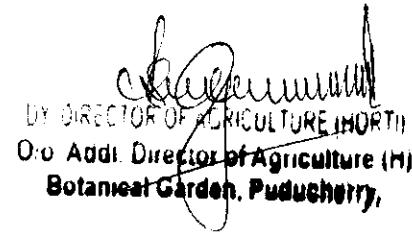 DY. DIRECTOR OF AGRICULTURE (HORTI)
O/o Addl. Director of Agriculture (H)
Botanical Garden, Puducherry,